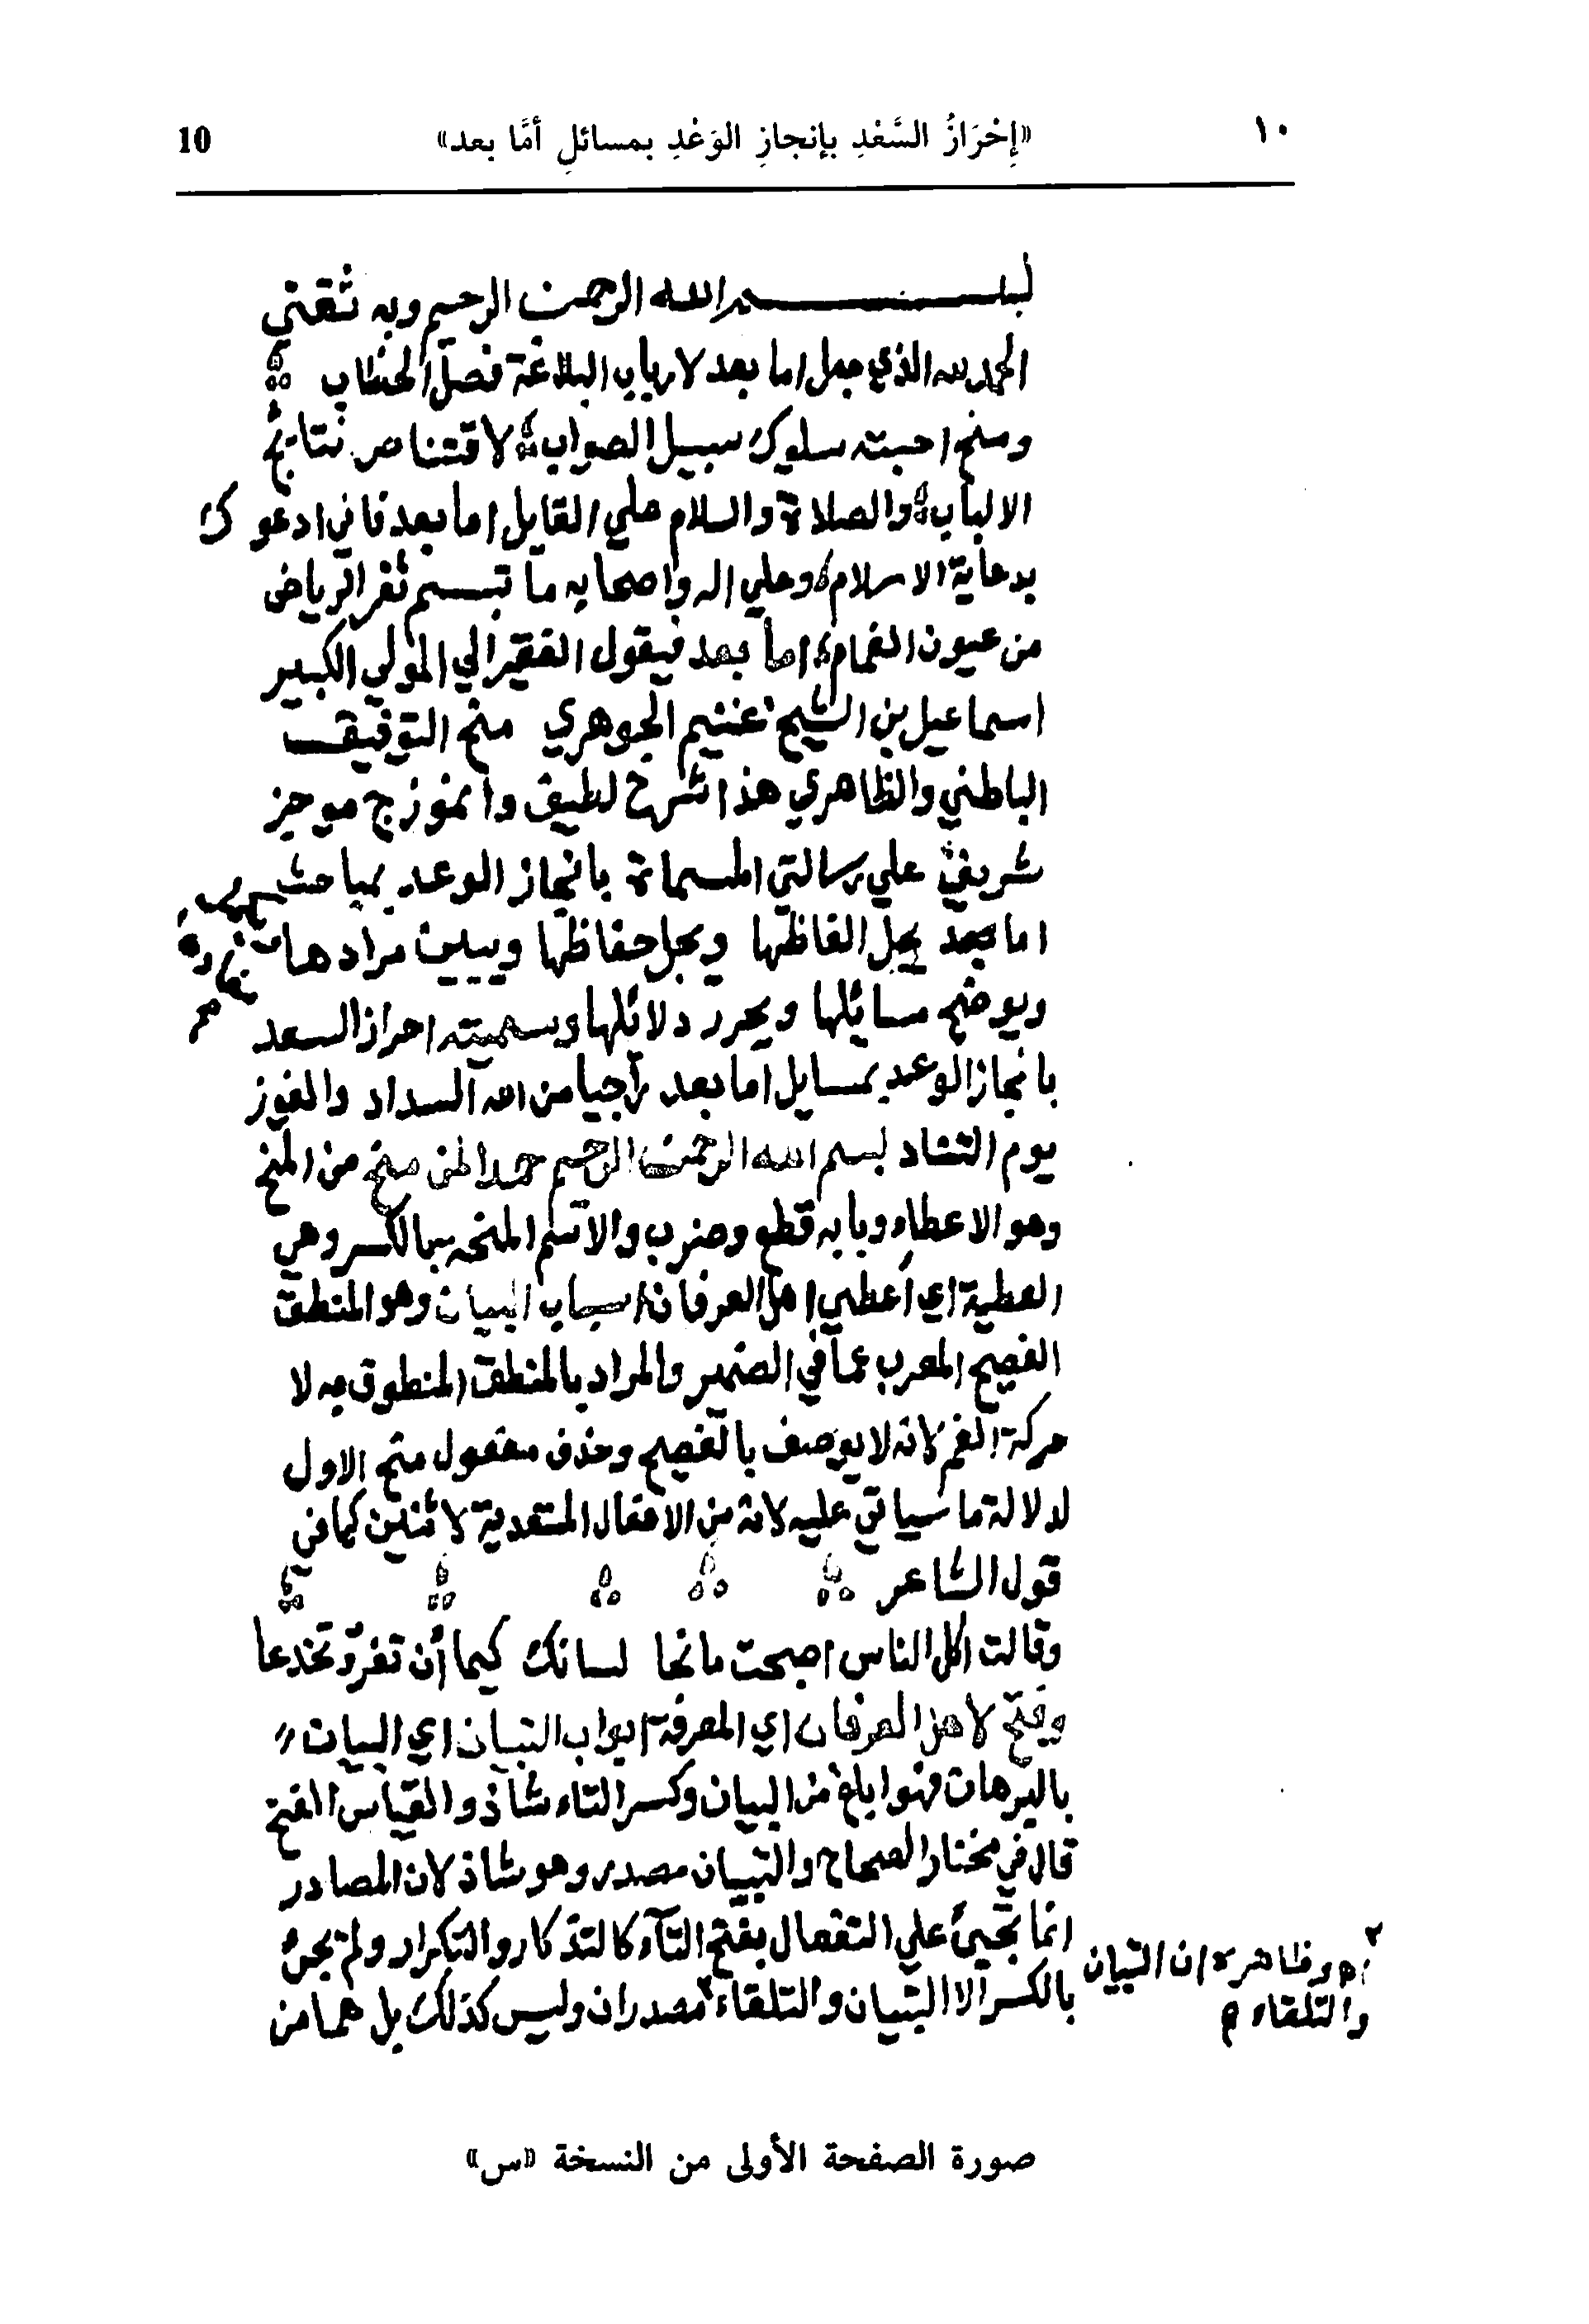 ١٠ «إِحْرَازُ السَّعْدِ بإنجازِ الوَعْدِ بمسائلِ أمَّا بعد» 10
بسم الله الرحمن الرحيم وبه ثقتي
الحمد لله الذي جعل اما بعد لارباب البلاغة فصل الخطاب
ومنح احبته سلوك سبيل الصواب لاقتناص نتايج
الالباب والصلاة والسلام علي القايل اما بعد فاني ادعوك
بدعاية الاسلام وعلي اله واصحابه ما تبسم ثغر الرياض
من عيون الغمام اما بعد فيقول الفقير الي المولي الكبير
اسماعيل بن الشيخ غنيم الجوهري منح التوفيق
الباطني والظاهري هذا شرح لطيف وانموزج موجز
شريف علي رسالتي المسماة بانجاز الوعد بمباحث
اما بعد يحل الفاظها ويجل حفاظها ويبين مرادها
ويوضح مسائلها ويحرر دلائلها وسميته احراز السعد
بانجاز الوعد بمسايل اما بعد راجيا من الله السداد والفوز
يوم التناد بسم الله الرحمن الرحيم حمدا لمن منح من المنح
وهو الاعطاء وبابه قطع وضرب والاسم المنحه بالكسر وهي
العطية اي أعطي اهل العرفان اسباب البيان وهو المنطق
الفصيح المعرب عما في الضمير والمراد بالمنطق المنطوق به لا
حركة الفم لانه لا يوصف بالفصيح وحذف مفعول منح الاول
لدلالة ما سياتي عليه لانه من الافعال المتعدية لاثنين كما في
قول الشاعر
وقالت اكل الناس اصبحت مانحا لسانك كيما أن تغر وتخدعا
وفتح لاهل العرفان اي المعرفة ابواب التبيان اي البيان
بالبرهان فهو ابلغ من البيان وكسر التاء شاذ والقياس الفتح
قال في مختار الصحاح والتبيان مصدر وهو شاذ لان المصادر
انما تجيئ علي التفعال بفتح التآء كالتذكار والتكرار ولم يجئ
بالكسر الا التبيان والتلقاء ٢ مصدران وليس كذلك بل هما من
٢ اه وظاهره ان التبيان
والتلقاء
صورة الصفحة الأولى من النسخة «س»